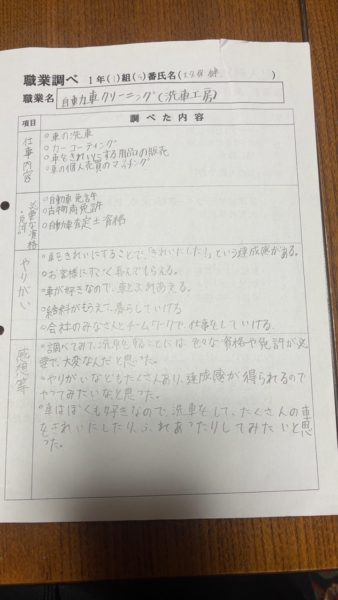 職業調べ 1年( )組( )番氏名( )
職業名 自動車クリーニング(洗車工房)
項目 調べた内容
仕事内容
○車の洗車
○カーコーティング
○車をきれいにする用品の販売
○車の個人売買のマッチング
必要な資格・免許
○自動車免許
○古物商免許
○自動車査定士資格
やりがい
○車をきれいにすることで、「きれいにした!」という達成感がある。
○お客様にすごく喜んでもらえる。
○車が好きなので、車とふれあえる。
○給料がもらえて、暮らしていける
○会社のみなさんとチームワークで、仕事をしていける。
感想等
○調べてみて、洗車をすることには、色々な資格や免許が必
要で、大変なんだと思った。
○やりがいなどもたくさんあり、達成感が得られるので
やってみたいなと思った。
○車はぼくも好きなので、洗車をして、たくさんの車
をきれいにしたり、ふれあったりしてみたいと思
った。